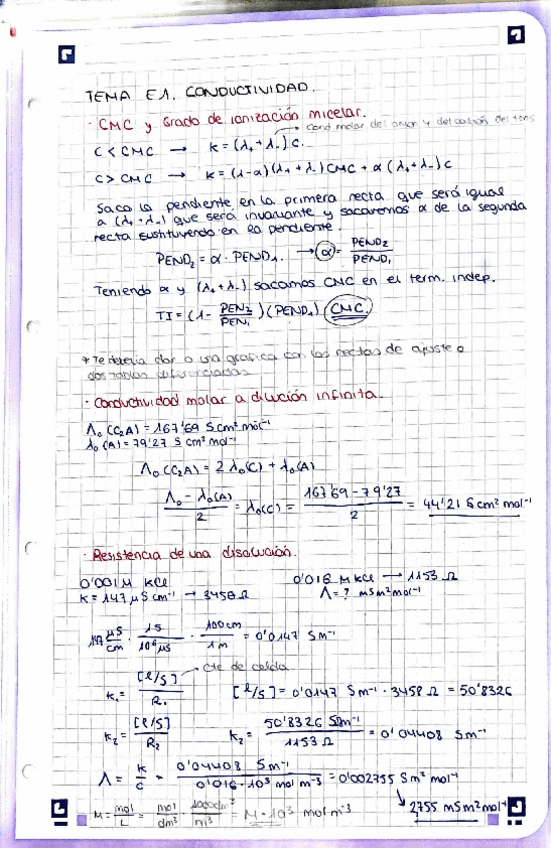 TEMA E1. CONDUCTIVIDAD.
· CMC y Grado de ionización micelar.
C < CMC → K = (λ₊ + λ₋) C. → cond molar del anion y del cation del tens
C > CMC → K = (1-α)(λ₊ + λ₋) CMC + α (λ₊ - λ₋) C
Saco la pendiente en la primera recta que será igual
a (λ₊ - λ₋) que será invariante y sacaremos α de la segunda
recta sustituyendo en la pendiente.
PEND₂ = α · PEND₁. → α = PEND₂ / PEND₁
Teniendo α y (λ₊ + λ₋) sacamos CMC en el term. indep.
TI = (1 - PEN₂ / PEN₁) (PEND₁) CMC.
* Te debería dar o una gráfica con las rectas de ajuste o
dos tablas diferenciadas
· Conductividad molar a dilución infinita.
Λ₀ (C₂A) = 167'69 S cm² mol⁻¹
λ₀ (A) = 79'27 S cm² mol⁻¹
Λ₀ (C₂A) = 2 λ₀ (C) + λ₀ (A)
Λ₀ - λ₀(A) / 2 = λ₀(C) = 167'69 - 79'27 / 2 = 44'21 S cm² mol⁻¹
· Resistencia de una disolución.
0'001M KCl 0'016 M KCl → 1153 Ω
K = 147 μS cm⁻¹ → 3458 Ω Λ = ? mS m² mol⁻¹
147 μS/cm · 1S / 10⁶ μS · 100 cm / 1 m = 0'0147 S m⁻¹
K₁ = [l/S] / R₁ → cte de celda [l/S] = 0'0147 S m⁻¹ · 3458 Ω = 50'8326
K₂ = [l/S] / R₂ K₂ = 50'8326 S m⁻¹ / 1153 Ω = 0'04408 S m⁻¹
Λ = K / C = 0'04408 S m⁻¹ / 0'016 · 10³ mol m⁻³ = 0'002755 S m² mol⁻¹
M = mol / L = mol / dm³ · 1000 dm³ / m³ = M · 10³ mol m⁻³ → 2'755 mS m² mol⁻¹